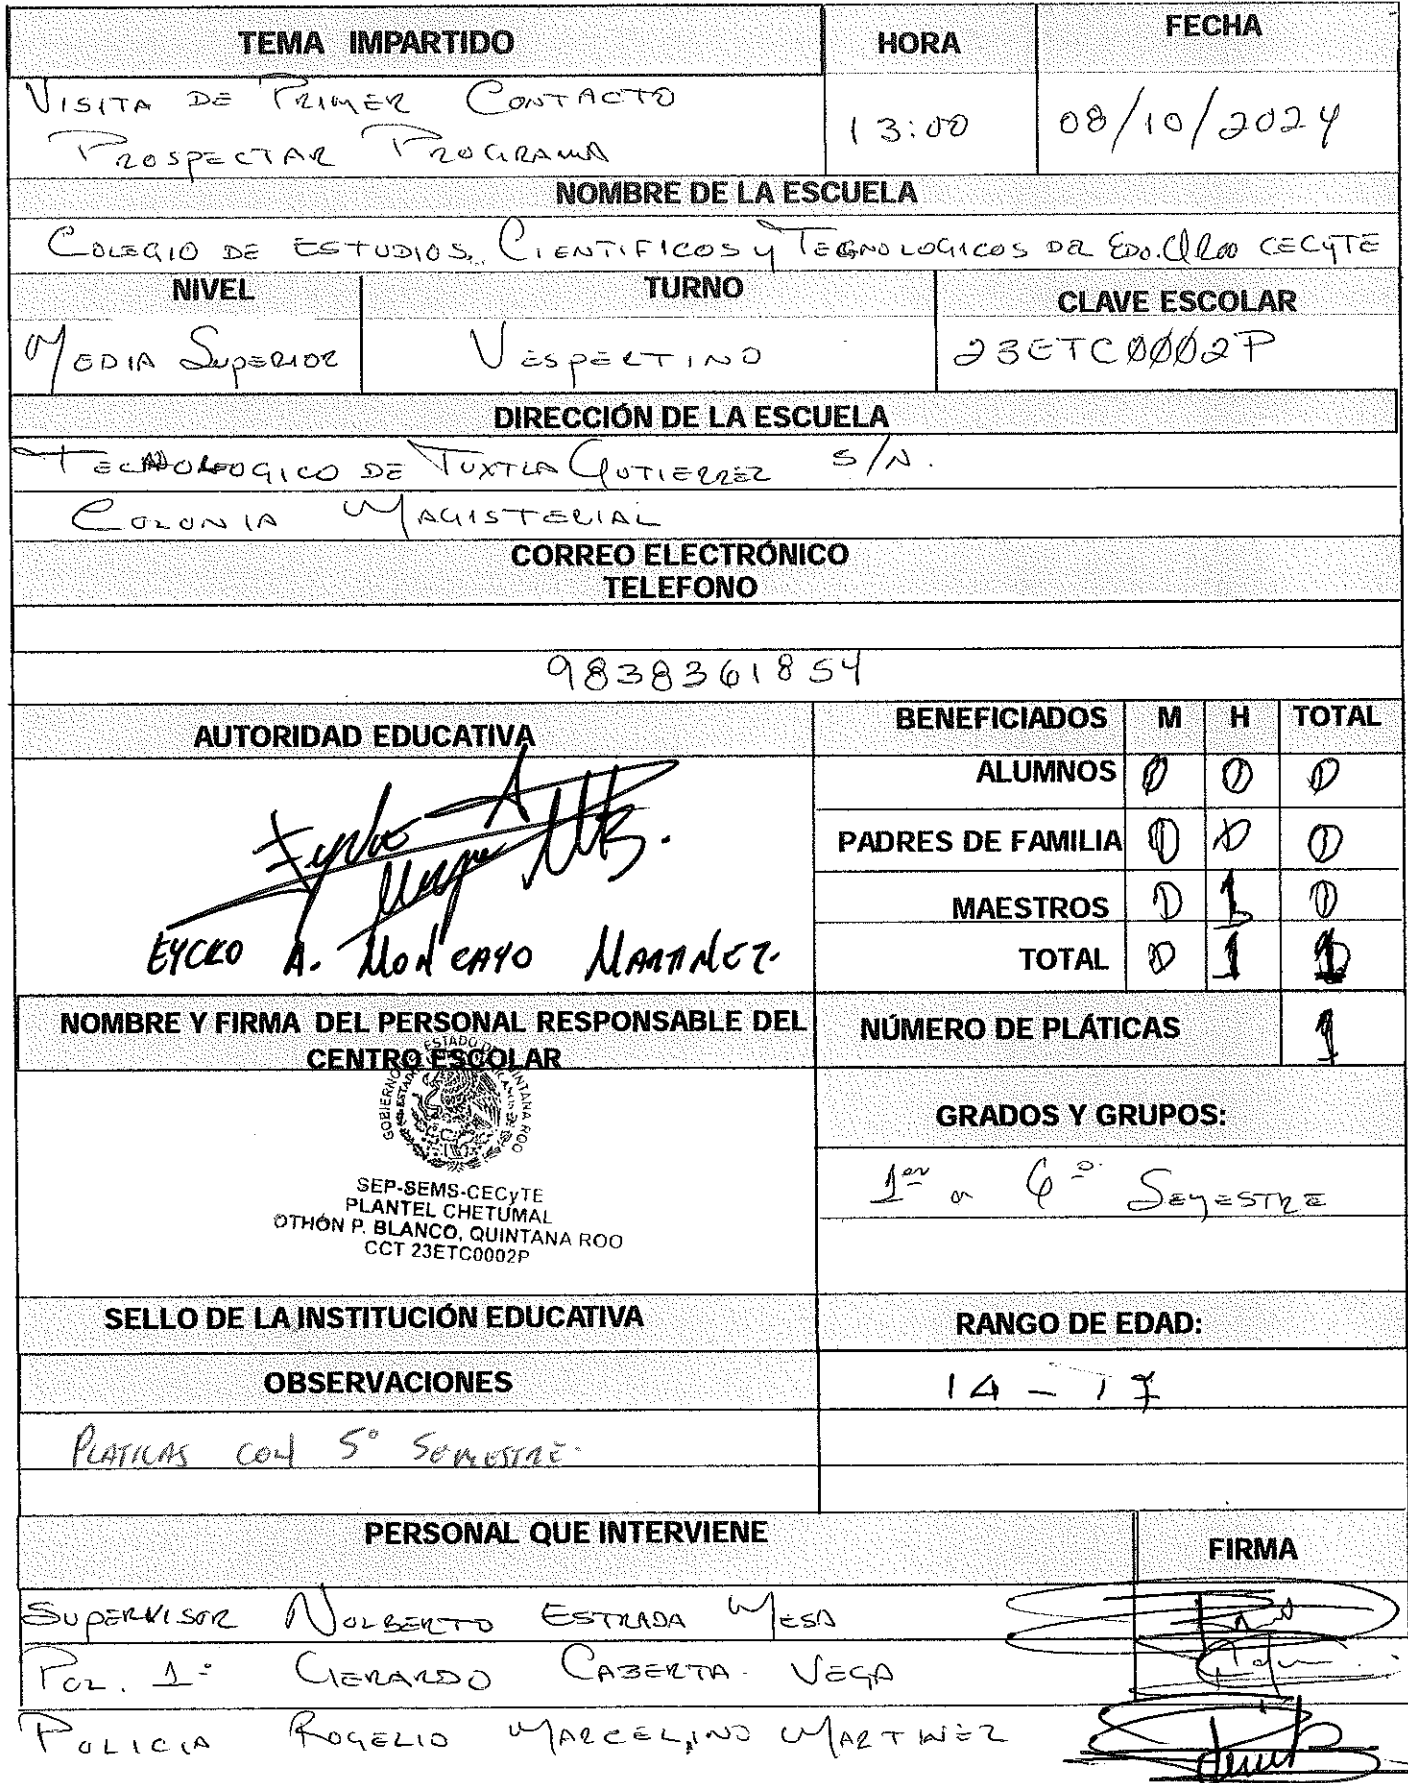 TEMA IMPARTIDO HORA FECHA
VISITA DE PRIMER CONTACTO
PROSPECTAR PROGRAMA 13:00 08/10/2024
NOMBRE DE LA ESCUELA
COLEGIO DE ESTUDIOS CIENTIFICOS y TECNOLOGICOS DEL EDO. Q.Roo CECYTE
NIVEL TURNO CLAVE ESCOLAR
MEDIA SUPERIOR VESPERTINO 23ETC0002P
DIRECCIÓN DE LA ESCUELA
TECNOLOGICO DE TUXTLA GUTIERREZ S/N.
COLONIA MAGISTERIAL
CORREO ELECTRÓNICO
TELEFONO
9838361854
AUTORIDAD EDUCATIVA BENEFICIADOS M H TOTAL
ALUMNOS 0 0 0
PADRES DE FAMILIA 0 0 0
MAESTROS 0 1 0
EYCKO A. MONCAYO MARTINEZ. TOTAL 0 1 1
NOMBRE Y FIRMA DEL PERSONAL RESPONSABLE DEL
CENTRO ESCOLAR
NÚMERO DE PLÁTICAS 1
GOBIERNO DEL ESTADO DE QUINTANA ROO
SEP-SEMS-CECyTE
PLANTEL CHETUMAL
OTHÓN P. BLANCO, QUINTANA ROO
CCT 23ETC0002P
GRADOS Y GRUPOS:
1er a 6º SEMESTRE
SELLO DE LA INSTITUCIÓN EDUCATIVA RANGO DE EDAD:
OBSERVACIONES 14 - 17
PLATICAS CON 5° SEMESTRE.
PERSONAL QUE INTERVIENE FIRMA
SUPERVISOR NOLBERTO ESTRADA MESA
POL. 1º GERARDO CABERTA VEGA
POLICIA ROGELIO MARCELINO MARTINEZ